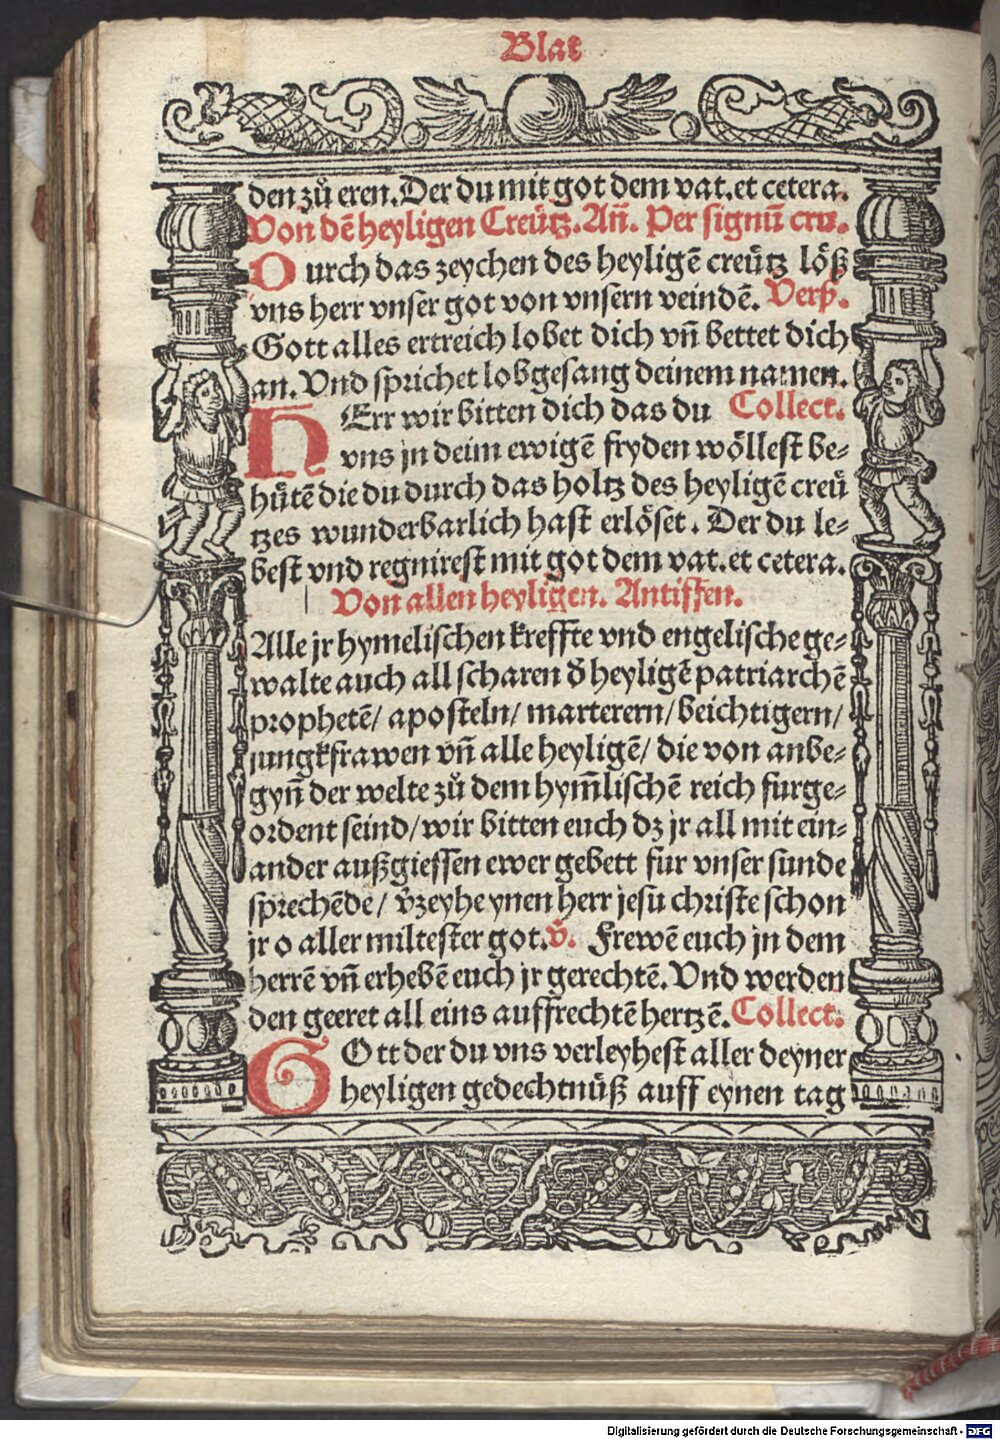 Blat
den zů eren. Der du mit got dem vat. et cetera.
Von dē heyligen Creütz. Añ. Per signū cru.
Durch das zeychen des heyligē creütz löß
vns herr vnser got von vnsern veindē. Verß.
Gott alles ertreich lobet dich vñ bettet dich
an. Vnd sprichet lobgesang deinem namen.
HErr wir bitten dich das du Collect.
vns jn deim ewigē fryden wöllest be-
hütē die du durch das holtz des heyligē creü
tzes wunderbarlich hast erlöset. Der du le-
best vnd regnirest mit got dem vat. et cetera.
Von allen heyligen. Antiffen.
Alle jr hymelischen kreffte vnd engelische ge-
walte auch all scharen ð heyligē patriarchē
prophetē/ aposteln/ marterern/ beichtigern/
jungkfrawen vñ alle heyligē/ die von anbe-
gyñ der welte zů dem hym̄lischē reich furge-
ordent seind/ wir bitten euch dz jr all mit ein-
ander außgiessen ewer gebett fur vnser sunde
sprechēde/ v̄zeyhe ynen herr jesu christe schon
jr o aller miltester got. v̄. Frewē euch jn dem
herrē vñ erhebē euch jr gerechtē. Vnd werden
den geeret all eins auffrechtē hertzē. Collect.
GOtt der du vns verleyhest aller deyner
heyligen gedechtnüß auff eynen tag
Digitalisierung gefördert durch die Deutsche Forschungsgemeinschaft - DFG